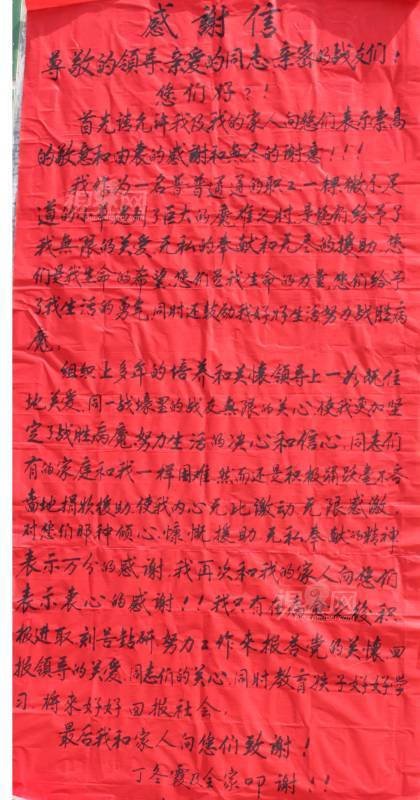 感謝信
尊敬的领导、亲爱的同志、亲密的战友们！
您们好？！
首先请允许我及我的家人向您们表示崇高
的敬意和由衷的感謝和無尽的谢意！！！
我作为一名普普通通的职工一棵微不足
道的小草遇到了巨大的魔难之时，是您们给予了
我無限的关爱、无私的奉献和无尽的援助，您
们是我生命的希望，您们是我生命的力量，您们给予
了我生活的勇气，同时还鼓励我好好生活努力战胜病
魔。
组织上多年的培养和关怀领导上一如既往
地关爱，同一战壕里的战友無限的关心，使我更加坚
定了战胜病魔努力生活的决心和信心，同志们
有的家庭和我一样困难，然而还是积极踊跃毫不吝
啬地捐款援助，使我内心无比激动，无限感激，
对您们那种倾心、慷慨援助、无私奉献的精神
表示万分的感谢，我再次和我的家人向您们
表示衷心的感谢！！我只有在病愈之后积
极进取刻苦钻研，努力工作来报答党的关怀，回
报领导的关爱，同志们的关心，同时教育孩子好好学
习，将来好好回报社会。
最后我和家人向您们致谢！
丁冬霞及全家叩谢！！